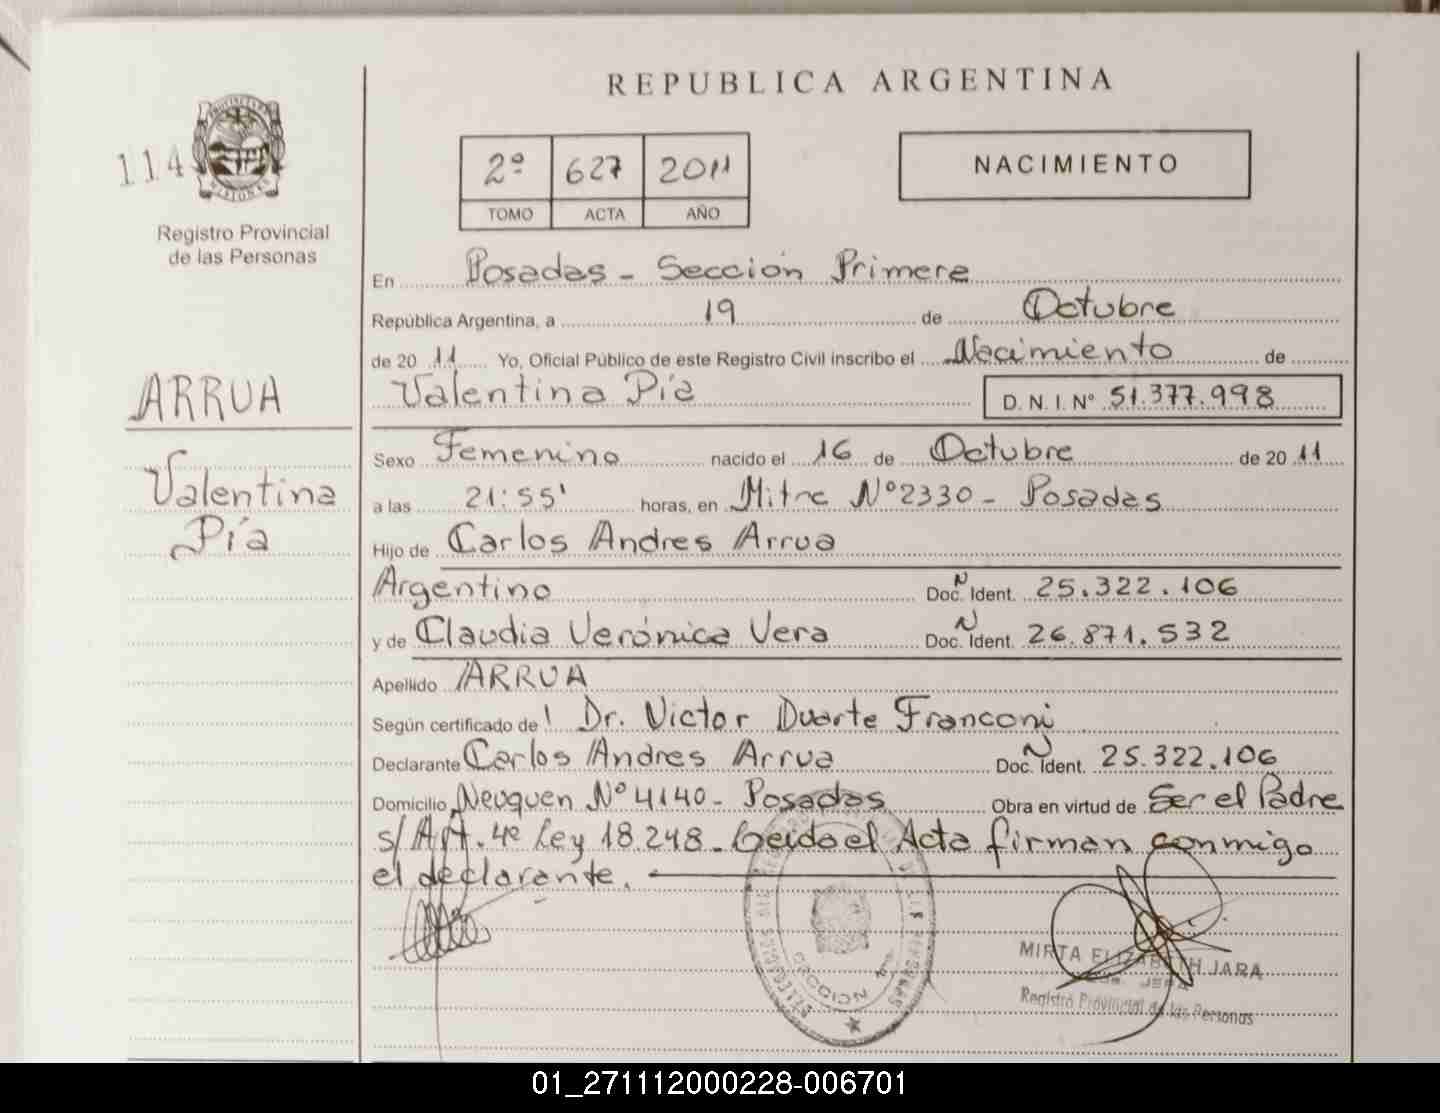 REPUBLICA ARGENTINA
114
2º 627 2011
TOMO ACTA AÑO
NACIMIENTO
Registro Provincial
de las Personas
En Posadas - Sección Primera
República Argentina, a 19 de Octubre
de 20 11 Yo, Oficial Público de este Registro Civil inscribo el Nacimiento de
Valentina Pía D.N.I. Nº 51.377.998
ARRUA
Valentina
Pía
Sexo Femenino nacido el 16 de Octubre de 20 11
a las 21:55' horas, en Mitre Nº 2330 - Posadas
Hijo de Carlos Andres Arrua
Argentino Doc. N Ident. 25.322.106
y de Claudia Verónica Vera Doc. N Ident. 26.871.532
Apellido ARRUA
Según certificado de Dr. Victor Duarte Franconi
Declarante Carlos Andres Arrua Doc. N Ident. 25.322.106
Domicilio Neuquen Nº 4140 - Posadas Obra en virtud de Ser el Padre
s/ Art. 4º Ley 18.248. Leida el Acta firman conmigo
el declarante.
MIRTA ELIZABETH JARA
JEFA
Registro Provincial de las Personas
01_271112000228-006701